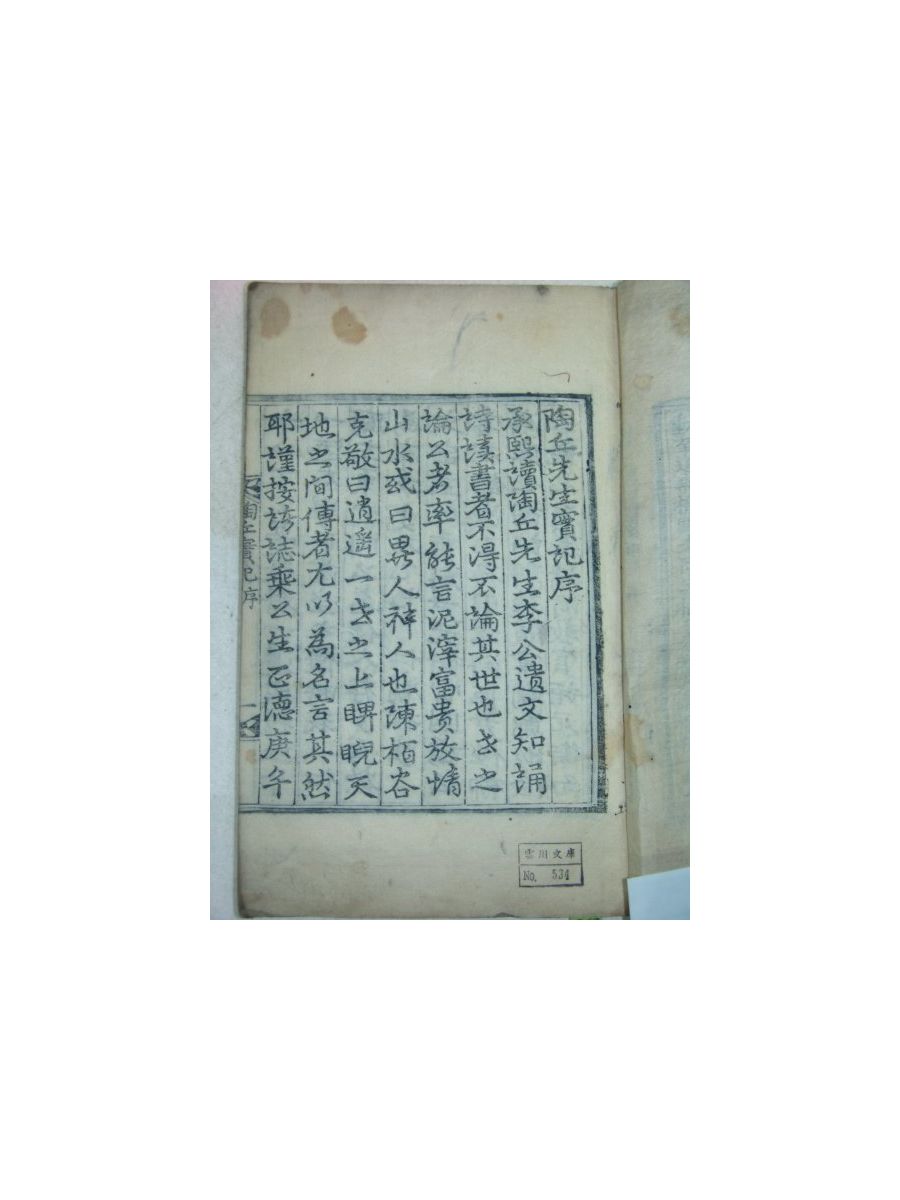 陶丘先生實記序
承熙讀陶丘先生李公遺文知誦
詩讀書者不得不論其世也世之
論公者率能言泥滓富貴放情
山水或曰異人神人也陳栢谷
克敬曰逍遙一世之上睥睨天
地之間傳者尤以為名言其然
耶謹按誌乘公生正德庚午
陶丘實記序
一
雲川文庫
No. 534